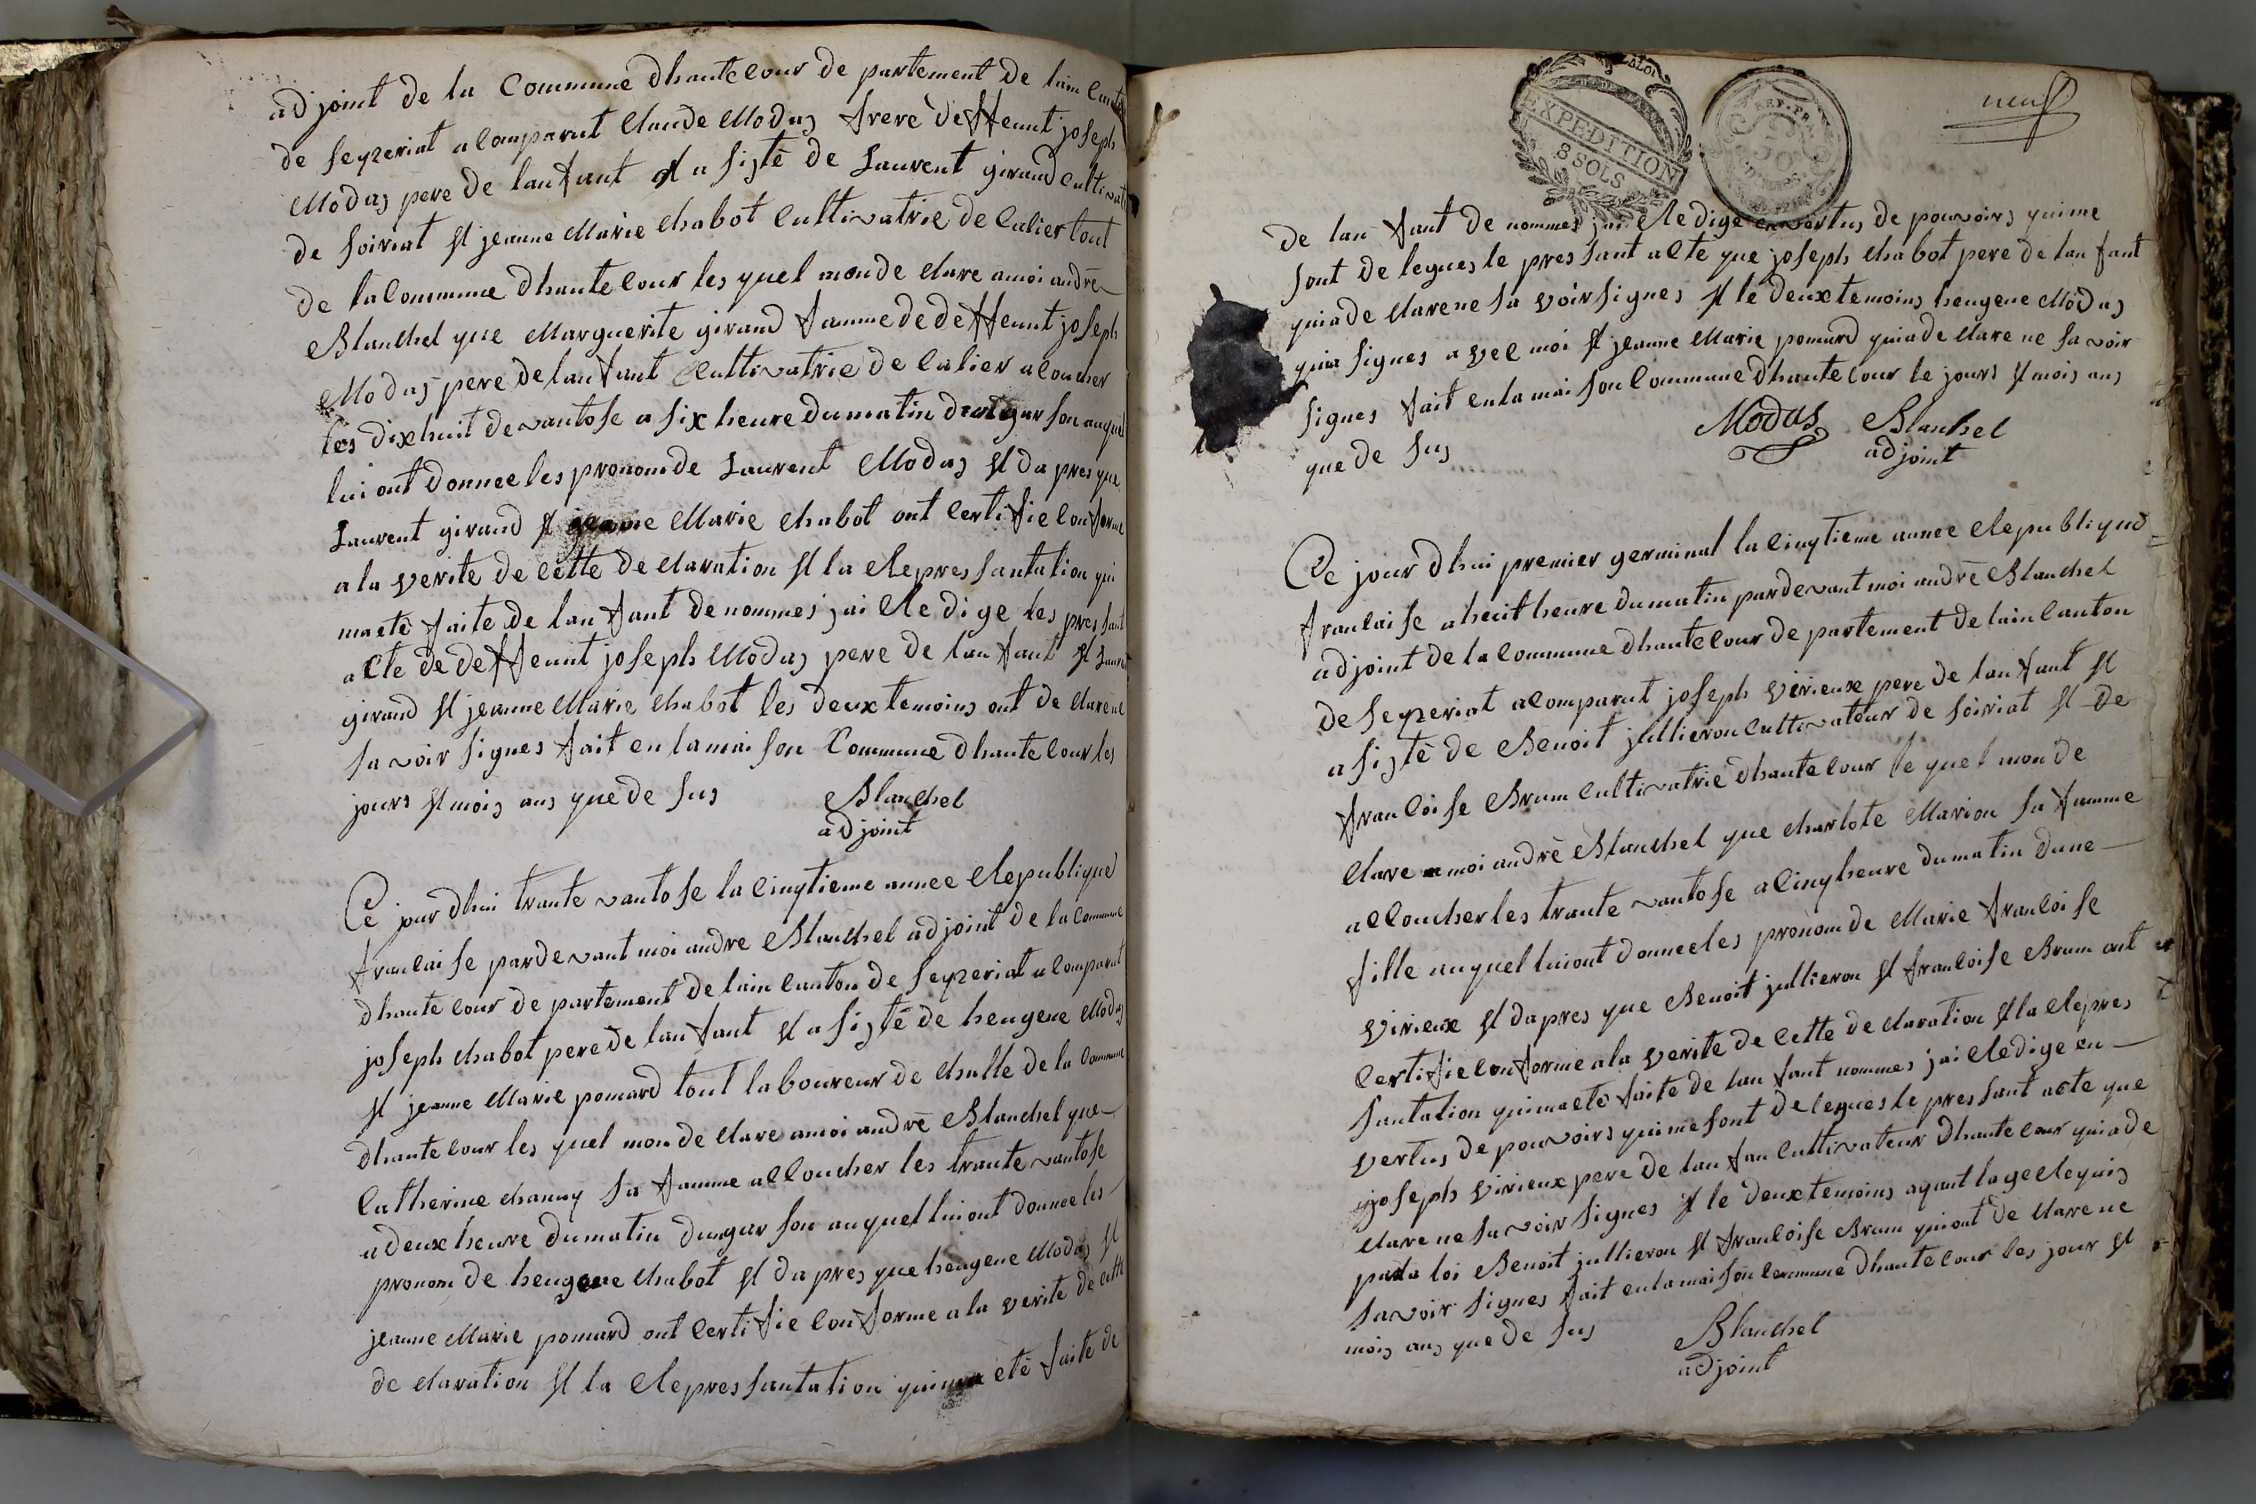 adjoint de la Commune dhautecour de partement de lain canton
de seyzeriat a comparut Claude Modas frere de deffeunt joseph
Modas pere de lanfant et a sisté de Laurent giraud cultivat
de soiriat et jeanne Marie Chabot cultivatrie de Calier tout
de la Commune dhautecour les quel mon de clare a moi andré
Blanchet que Marguerite giraud famme de deffeunt joseph
Modas pere de lanfant Cultivatrie de Calier a coucher
les dixhuit de vantose a six heure du matin dun garson auquel
lui ont donnee les pronom de Laurent Modas et da pres que
Laurent giraud et jeanne Marie Chabot ont Certifie conforme
a la verite de cette de claration et la Repressantation qui
ma eté faite de lanfant de nommes jai Redige les pressant
acte de deffeunt joseph Modas pere de lanfant et Laurent
giraud et jeanne Marie Chabot les deux temoins ont de clarene
savoir signes fait en la maison Commune dhautecour les
jours et mois ans que de sus
Blanchet
adjoint
Ce jour dhui trante vantose la cinqtieme annee Republique
francaise pardevant moi andre Blanchet adjoint de la Commune
dhautecour de partement de lain canton de seyzeriat a comparut
joseph Chabot pere de lanfant et a sisté de heugene Modas
et jeanne Marie pomard tout laboureur de Challe de la Commune
dhautecour les quel mon de clare a moi andré Blanchet que
Catherine channy sa famme accoucher les trante vantose
a deux heure du matin dun garson auquel lui ont donnee les
pronom de heugene Chabot et da pres que heugene Modas et
jeanne Marie pomard ont Certifie conforme a la verite de cette
de claration et la Repressantation qui ma eté faite de
LA LOI
EXPEDITION
8 SOLS
REP. FRA.
50
neuf
de lan fant de nommes jai Redige en vertus de pouvoirs qui me
sont de legues le pressant acte que joseph Chabot pere de lan fant
qui a de clare ne sa voir signes et le deux temoins heugene Modas
qui a signes a vec moi et jeanne Marie pomard qui a de clare ne savoir
signes fait en la maison Commune dhautecour le jours et mois ans
que de sus
Modas Blanchet
adjoint
Ce jour dhui premier germinal la cinqtieme annee Republique
francaise a huit heure du matin pardevant moi andré Blanchet
adjoint de la Commune dhautecour de partement de lain canton
de seyzeriat a comparut joseph virieux pere de lan fant et
a sisté de Benoit jullieron cultivateur de soiriat et de
francoise Brum cultivatrie dhautecour le quel mon de
clare a moi andré Blanchet que charlote Marion sa famme
accoucher les trante vantose a cinq heure du matin dune
fille auquel lui ont donnee les pronom de Marie francoise
virieux et da pres que Benoit jullieron et francoise Brum ont
Certifie conforme a la verite de cette de claration et la Repres
santation qui ma eté faite de lan fant nommes jai Redige en
vertus de pouvoirs qui me sont de legues le pressant acte que
joseph virieux pere de lan fan cultivateur dhautecour qui a de
clare ne savoir signes et le deux temoins ayant lage Requis
par la loi Benoit jullieron et francoise Brum qui ont de clare ne
savoir signes fait en la maison commune dhautecour les jour et
mois ans que de sus
Blanchet
adjoint